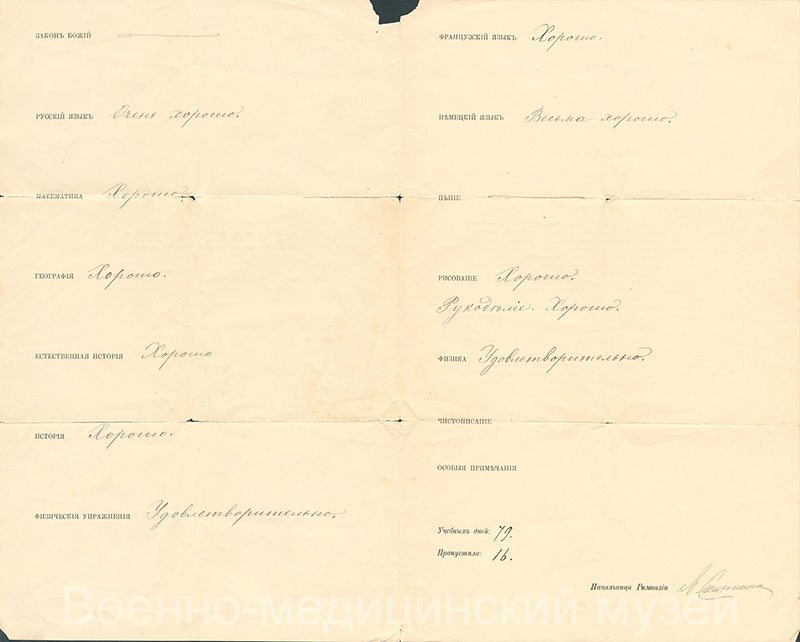 ЗАКОНЪ БОЖІЙ
РУССКІЙ ЯЗЫКЪ Очень хорошо.
МАТЕМАТИКА Хорошо.
ГЕОГРАФІЯ Хорошо.
ЕСТЕСТВЕННАЯ ИСТОРІЯ Хорошо
ИСТОРІЯ Хорошо.
ФИЗИЧЕСКІЯ УПРАЖНЕНІЯ Удовлетворительно.
ФРАНЦУЗСКІЙ ЯЗЫКЪ Хорошо.
НѢМЕЦКІЙ ЯЗЫКЪ Весьма хорошо.
ПѢНІЕ
РИСОВАНІЕ Хорошо.
Рукодѣліе. Хорошо.
ФИЗИКА Удовлетворительно.
ЧИСТОПИСАНІЕ
ОСОБЫЯ ПРИМѢЧАНІЯ
Учебныхъ дней: 79.
Пропустила: 16.
Начальница Гимназіи
Военно-медицинский музей